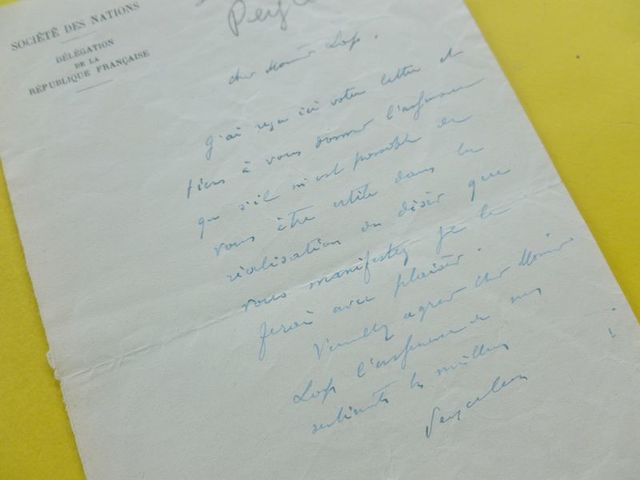 SOCIÉTÉ DES NATIONS
DÉLÉGATION
DE LA
RÉPUBLIQUE FRANÇAISE
Cher Lop.
J'ai reçu ici votre lettre et
tiens à vous donner l'assurance
que s'il m'est possible de
vous être utile dans la
réalisation du désir que
vous manifestez je le
ferai avec plaisir.
Veuillez agréer cher
Lop l'assurance de mes
sentiments les meilleurs